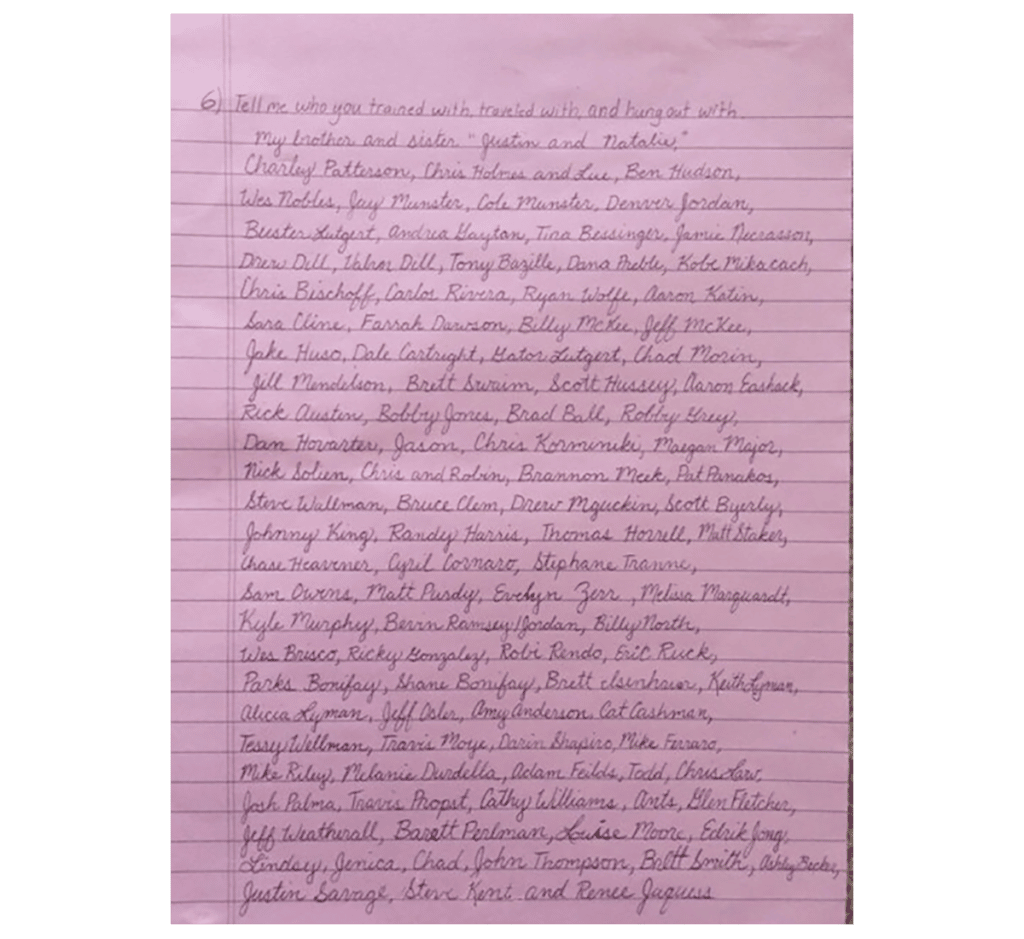 6) Tell me who you trained with, traveled with, and hung out with.
My brother and sister "Justin and Natalie,"
Charley Patterson, Chris Holmes and Lue, Ben Hudson,
Wes Nobles, Jay Munster, Cole Munster, Denver Jordan,
Buster Lutgert, Andrea Gaytan, Tina Bessinger, Jamie Necrasson,
Drew Dill, Dill, Tony Bazille, Dana Preble, Kobe Mikacach,
Chris Bischoff, Carlos Rivera, Ryan Wolfe, Aaron Katin,
Sara Cline, Farrah Dawson, Billy McKee, Jeff McKee,
Jake Huso, Dale Cartright, Gator Lutgert, Chad Morin,
Jill Mendelson, Brett Swaim, Scott Hussey, Aaron
Rick Austin, Bobby Jones, Brad Ball, Robby Grey,
Dan Hovarter, Jason, Chris Korminiki, Maegan Major,
Nick Solien, Chris and Robin, Brannon Meek, Pat Panakos,
Steve Wallman, Bruce Clem, Drew Mguckin, Scott Byerly,
Johnny King, Randy Harris, Thomas Horrell, Matt Staker,
Chase Heavener, Cyril Cornaro, Stephane Tranne,
Sam Owens, Matt Purdy, Evelyn Zerr, Melissa Marquardt,
Kyle Murphy, Ramsey/Jordan, Billy North,
Wes Brisco, Ricky Gonzalez, Robi Rendo, Eric Ruck,
Parks Bonifay, Shane Bonifay, Brett eisenhauer, Keith Lyman,
Alicia Lyman, Jeff Osler, Amy Anderson Cat Cashman,
Tessy Wellman, Travis Moye, Darin Shapiro, Mike Ferraro,
Mike Riley, Melanie Durdella, Adam Feilds, Todd, Chris Law,
Josh Palma, Travis Propst, Cathy Williams, Ants, Glen Fletcher,
Jeff Weatherall, Barett Perlman, Louise Moore, Edrik Jong,
Lindsey, Jenica, Chad, John Thompson, Britt Smith, Ashley Becker,
Justin Savage, Steve Kent and Renee Jaquess